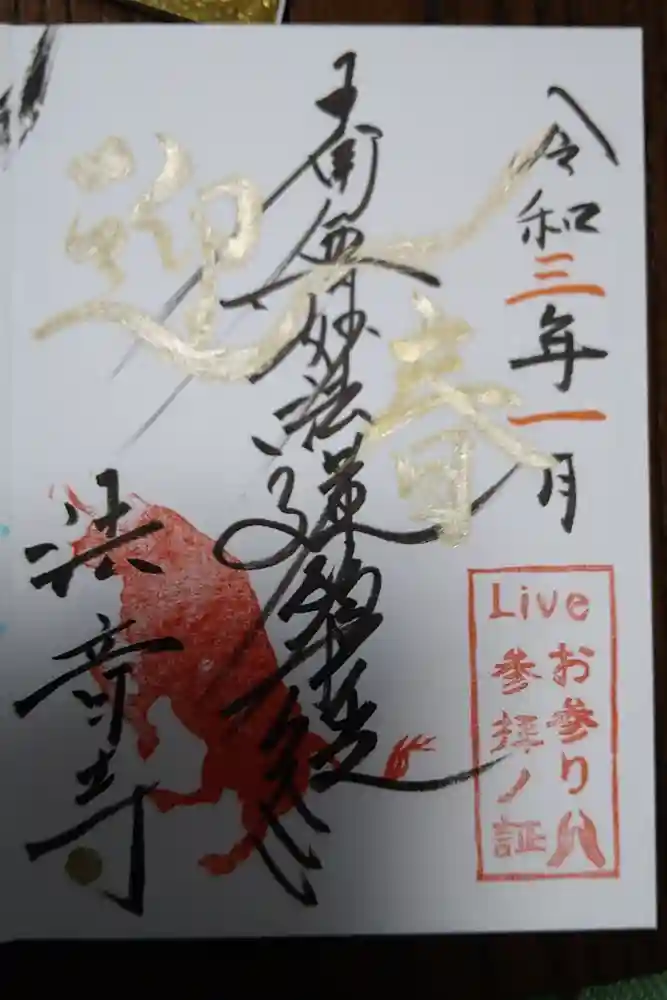 令和三年一月
南無妙法蓮華経
迎春
法音寺
Live
お参り
参拝ノ証